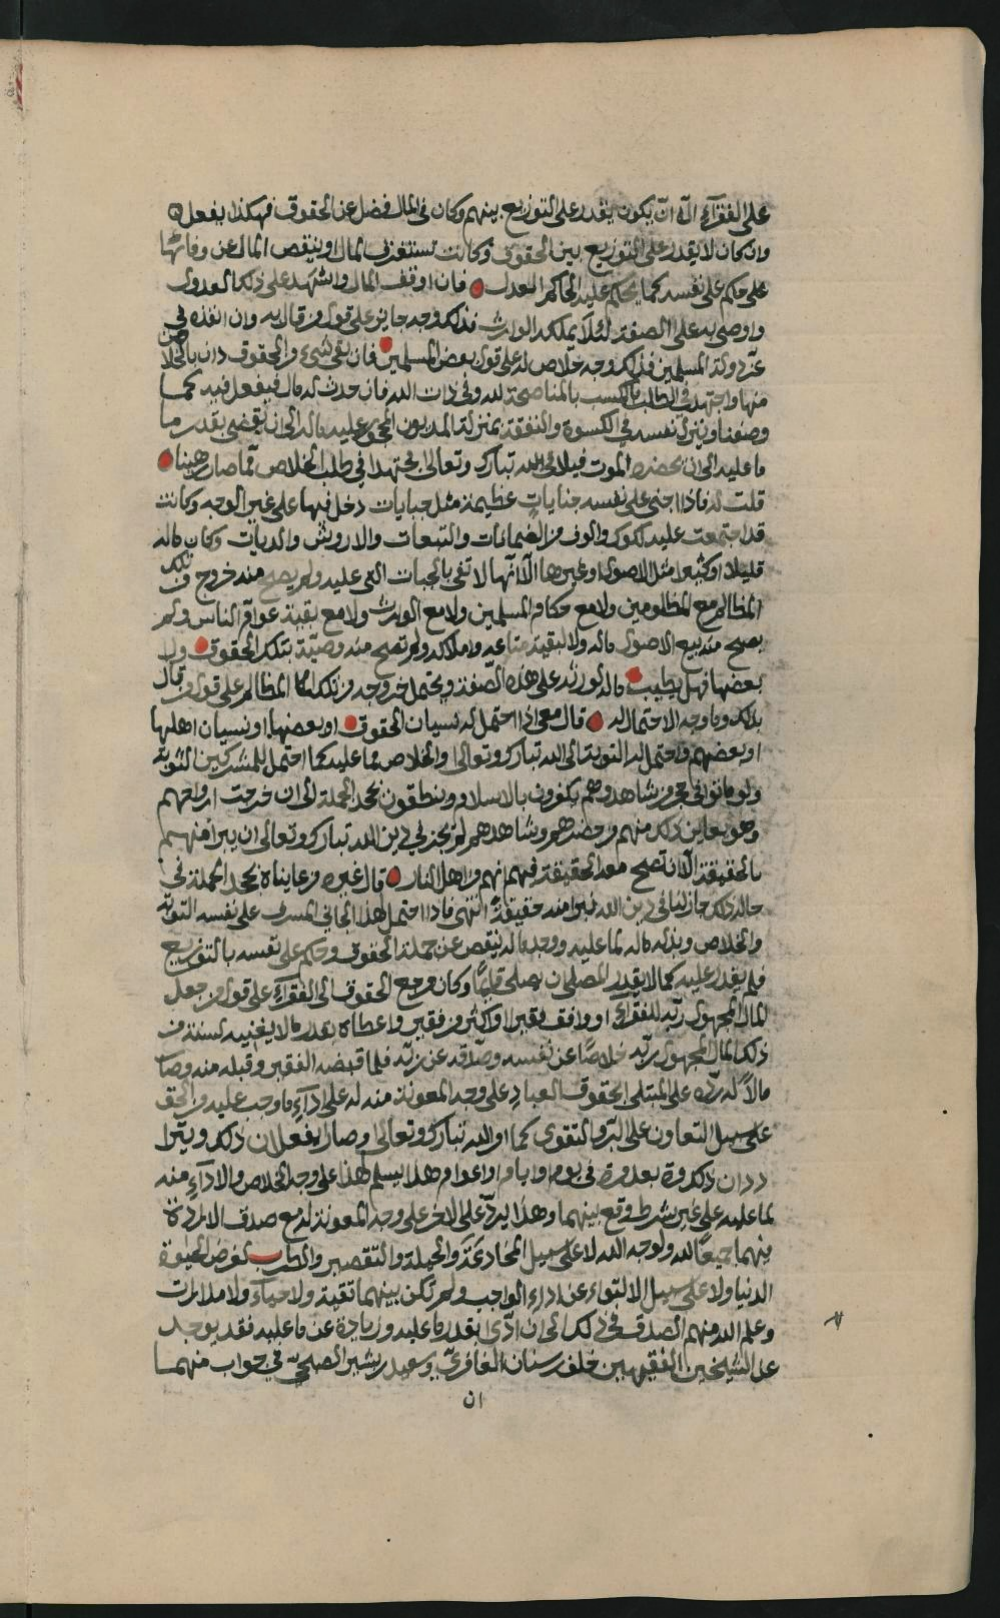 على الفقرآء الّا ان يكون يقدر على التوزيع بينهم وكان فى المال فضل عن الحقوق فهكذا يفعل
وان كان لا يقدر على التوزيع بين الحقوق وكانت تستغرق المال او ينقص المال عن وفائها
على حكم على نفسه كما يحكم عليه الحاكم العدل فان اوقف المال واشهد على ذلك العدول
واوصى به على الصفة لئلا يملكه الوارث فذلك وجه جايز على قول من قال به وان انفذه في
عزّ دولة المسلمين فذلك وجه خلاص له على قول بعض المسلمين فان بقى شىء من الحقوق دان بالخلاص
منها واجتهد فى الطلب بالكسب بالمناصحة لله وفى ذات الله فان حدث له مال فيفعل فيه كما
وصفنا وينزل نفسه في الكسوة والنفقة بمنزلة المديون المحجور عليه ماله الى ان يقضى بقدر ما
ما عليه الى ان يحضره الموت فيلاقى الله تبارك وتعالى مجتهدا في طلب الخلاص مما صار رهينا
قلت له فاذا جنى على نفسه جنايات عظيمة مثل جبايات دخل فيها على غير الوجه وكانت
قد اجتمعت عليه لكوك والوف من الضمانات والتبعات والاروش والديات وكان ماله
قليلا او كثيرا مثل الاصول وغيرها الّا انّها لا تفى بالجبات التى عليه ولم يصح منه خروج من تلك
المظالم مع المظلومين ولا مع حكام المسلمين ولا مع الوارث ولا مع بقية عوام الناس ولم
يصح منه بيع الاصول ماله ولا لبقية متاعه واملاكه ولم تصح منه وصيّة بتلك الحقوق ولا
بعضها فهل يطيب ماله لورثته على هذه الصّفة ويحتمل خروجه من تلك المظالم على قول من قال
بذلك وما وجه الاحتمال له قال معى اذا احتمل له نسيان الحقوق او بعضها او نسيان اهلها
او بعضهم واحتمل له التوبة الى الله تبارك وتعالى والخلاص مما عليه كما احتمل للمشركين التوبة
ولو ماتوا في حجر من شاهدهم وهم يكفرون بالاسلام وينطقون بجحد الجملة الى ان خرجت ارواحهم
وهو يعاين ذلك منهم من حضرهم وشاهدهم لم يجز في دين الله تبارك وتعالى ان يبرا منهم
بالحقيقة الّا ان تصح معه الحقيقة فيهم انهم من اهل النار قال غيره من عايناه يجحد الجملة فى
حاله ذلك جاز لنا فى دين الله نبرا منه حقيقة انتهى فاذا احتمل لهذا الجاني المسرف على نفسه التوبة
والخلاص وبذله ماله لما عليه ووجد ماله ينقص عن جملة الحقوق وحكم على نفسه بالتوزيع
فلم يقدر عليه كما لا يقدر المصلى ان يصلى قايما وكان مرجع الحقوق الى الفقرآء على قول من جعل
المال المجهول ربّه للفقرآء او وافق فقيرا او اكثر من فقير واعطاه بقدر ما لا يغنيه لسنة من
ذلك المال المجهول ربّه خلاصا عن نفسه وصدقة عن ربّه فلما قبضه الفقير وقبله منه وصار
مالاً له ردّه على المبتلى بحقوق العباد على وجه المعونة منه له على ادآء ما وجب عليه من الحق
على سبيل التعاون على البرّ والتقوى كما امر الله تبارك وتعالى وصار يفعلان ذلك ويترا
ددان ذلك مرة بعد مرة فى يوم وايام واعوام وهذا يسلم لهذا على وجه الخلاص والادآء منه
لما عليه على غير شرط وقع بينهما وهذا يردّ على الاخر على وجه المعونة له مع صدق الارادة
منهما جميعا لله ولوجه الله لا على سبيل المخادعة والحيلة والتقصير والطلب لغرض الحيوة
الدنيا ولا على سبيل الالتواء عن ادآء الواجب ولم تكن بينهما تقية ولا حياء ولا مدارات
وعلم الله منهم الصدق في ذلك الى ان ادّى بقدر ما عليه وزيادة عن ما عليه فقد يوجد
عن الشيخين الفقيهين خلف بن سنان الغافريّ وسعيد بن بشير الصبحيّ في جواب منهما
ان